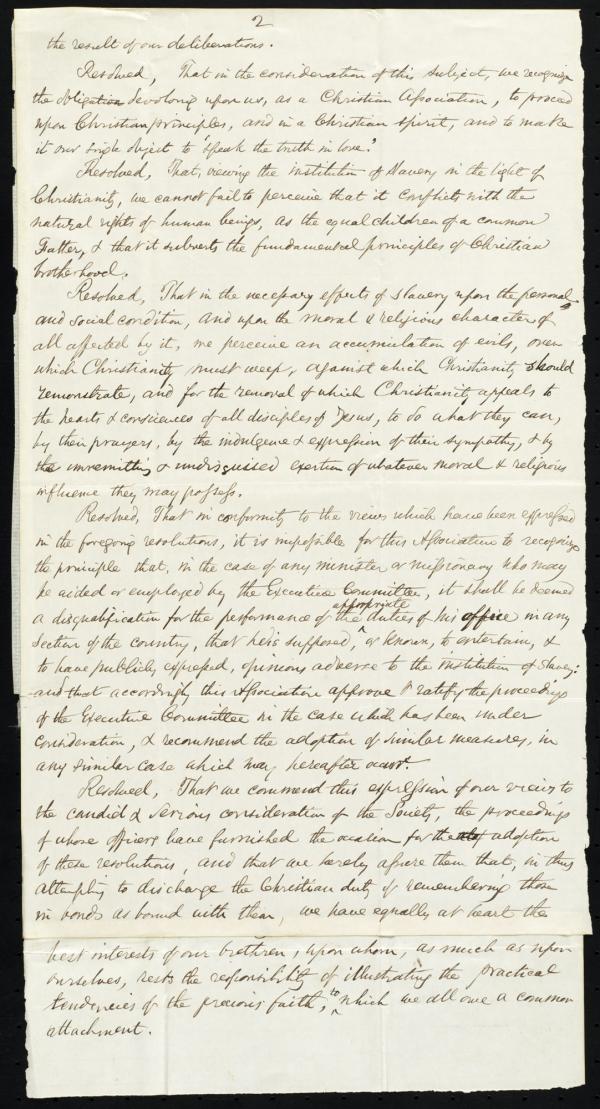 2
the result of our deliberations.
Resolved, That in the consideration of this subject, we recognize
the obligation devolving upon us, as a Christian Association, to proceed
upon Christian principles, and in a Christian spirit, and to make
it our single object to "speak the truth in love."
Resolved, That, viewing the institution of Slavery in the light of
Christianity, we cannot fail to perceive that it conflicts with the
natural rights of human beings, as the equal children of a common
Father, & that it subverts the fundamental principles of Christian
brotherhood.
Resolved, That in the necessary effects of slavery upon the personal
and social condition, and upon the moral & religious character of
all affected by it, we perceive an accumulation of evils, over
which Christianity must weep, against which Christianity should
remonstrate, and for the removal of which Christianity appeals to
the hearts & consciences of all disciples of Jesus, to do what they can,
by their prayers, by the indulgence & expression of their sympathy, & by
the unremitting & undisguised exertion of whatever moral & religious
influence they may possess.
Resolved, That in conformity to the views which have been expressed
in the foregoing resolutions, it is impossible for this Association to recognize
the principle that, in the case of any minister or missionary who may
be aided or employed by the Executive Committee, it shall be deemed
a disqualification for the performance of the appropriate duties of his office in any
section of the country, that he is supposed, or known, to entertain, &
to have publicly expressed, opinions adverse to the institution of Slavery:
and that accordingly this Association approve & ratify the proceedings
of the Executive Committee in the case which has been under
consideration, & recommend the adoption of similar measures, in
any similar case which may hereafter occur.
Resolved, That we commend this expression of our views to
the candid & serious consideration of the Society, the proceedings
of whose officers have furnished the occasion for the adoption
of these resolutions, and that we hereby assure them that, in thus
attempting to discharge the Christian duty of remembering those
in bonds as bound with them, we have equally at heart the
best interests of our brethren, upon whom, as much as upon
ourselves, rests the responsibility of illustrating the practical
tendencies of the precious faith, to which we all owe a common
attachment.